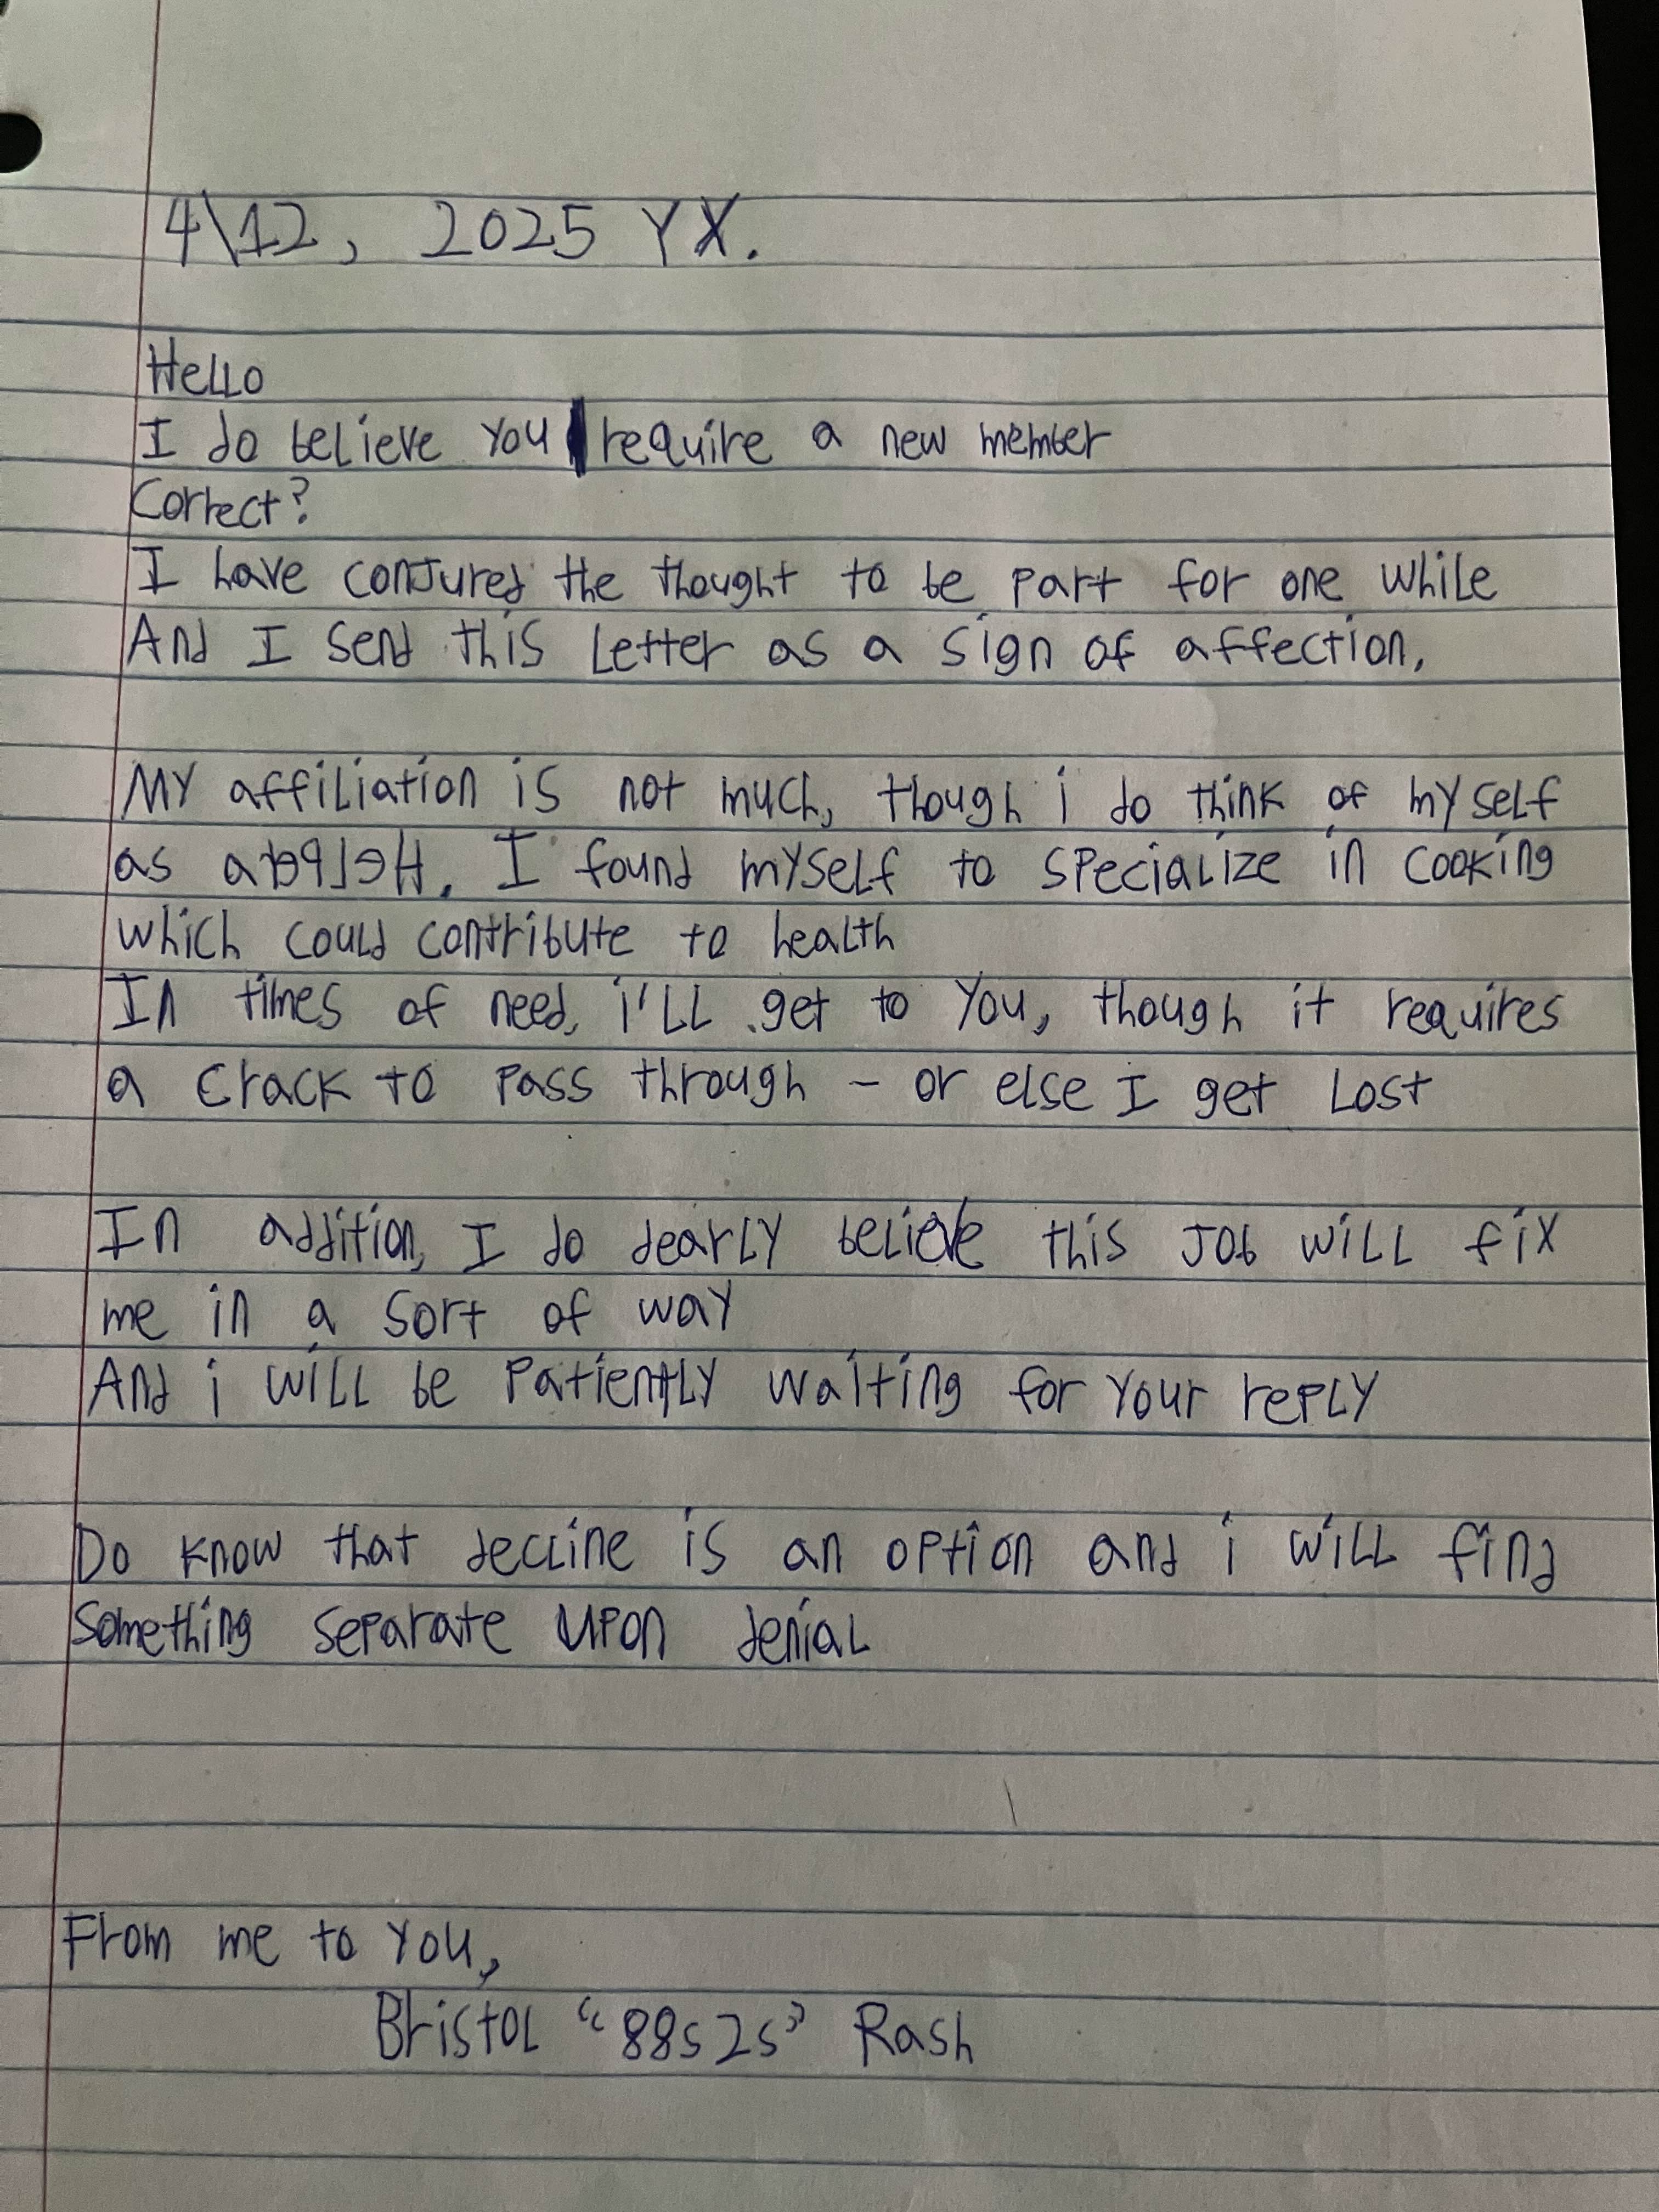 4\12, 2025 YX.
Hello
I do believe you require a new member
Correct?
I have conjured the thought to be part for one while
And I send this Letter as a sign of affection.
My affiliation is not much, though i do think of my self
as . I found myself to specialize in cooking
which could contribute to health
In times of need, i'll get to you, though it requires
a crack to pass through - or else I get lost
In addition, I do dearly believe this job will fix
me in a sort of way
And i will be patiently waiting for your reply
Do know that decline is an option and i will find
something separate upon denial
From me to you,
Bristol "88s2s" Rash